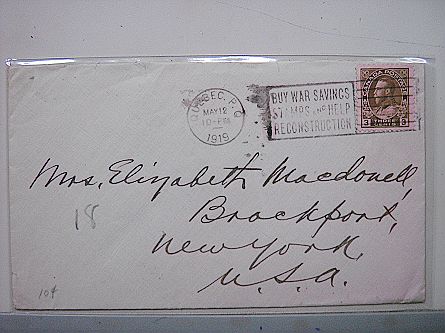 QUEBEC, P.Q.
MAY 12
10-PM
1919
BUY WAR SAVINGS
STAMPS AND HELP
RECONSTRUCTION
CANADA POSTAGE
3 THREE 3
CENTS
Mrs. Elizabeth Macdowell,
Brockport,
New York,
U.S.A.
18
10¢